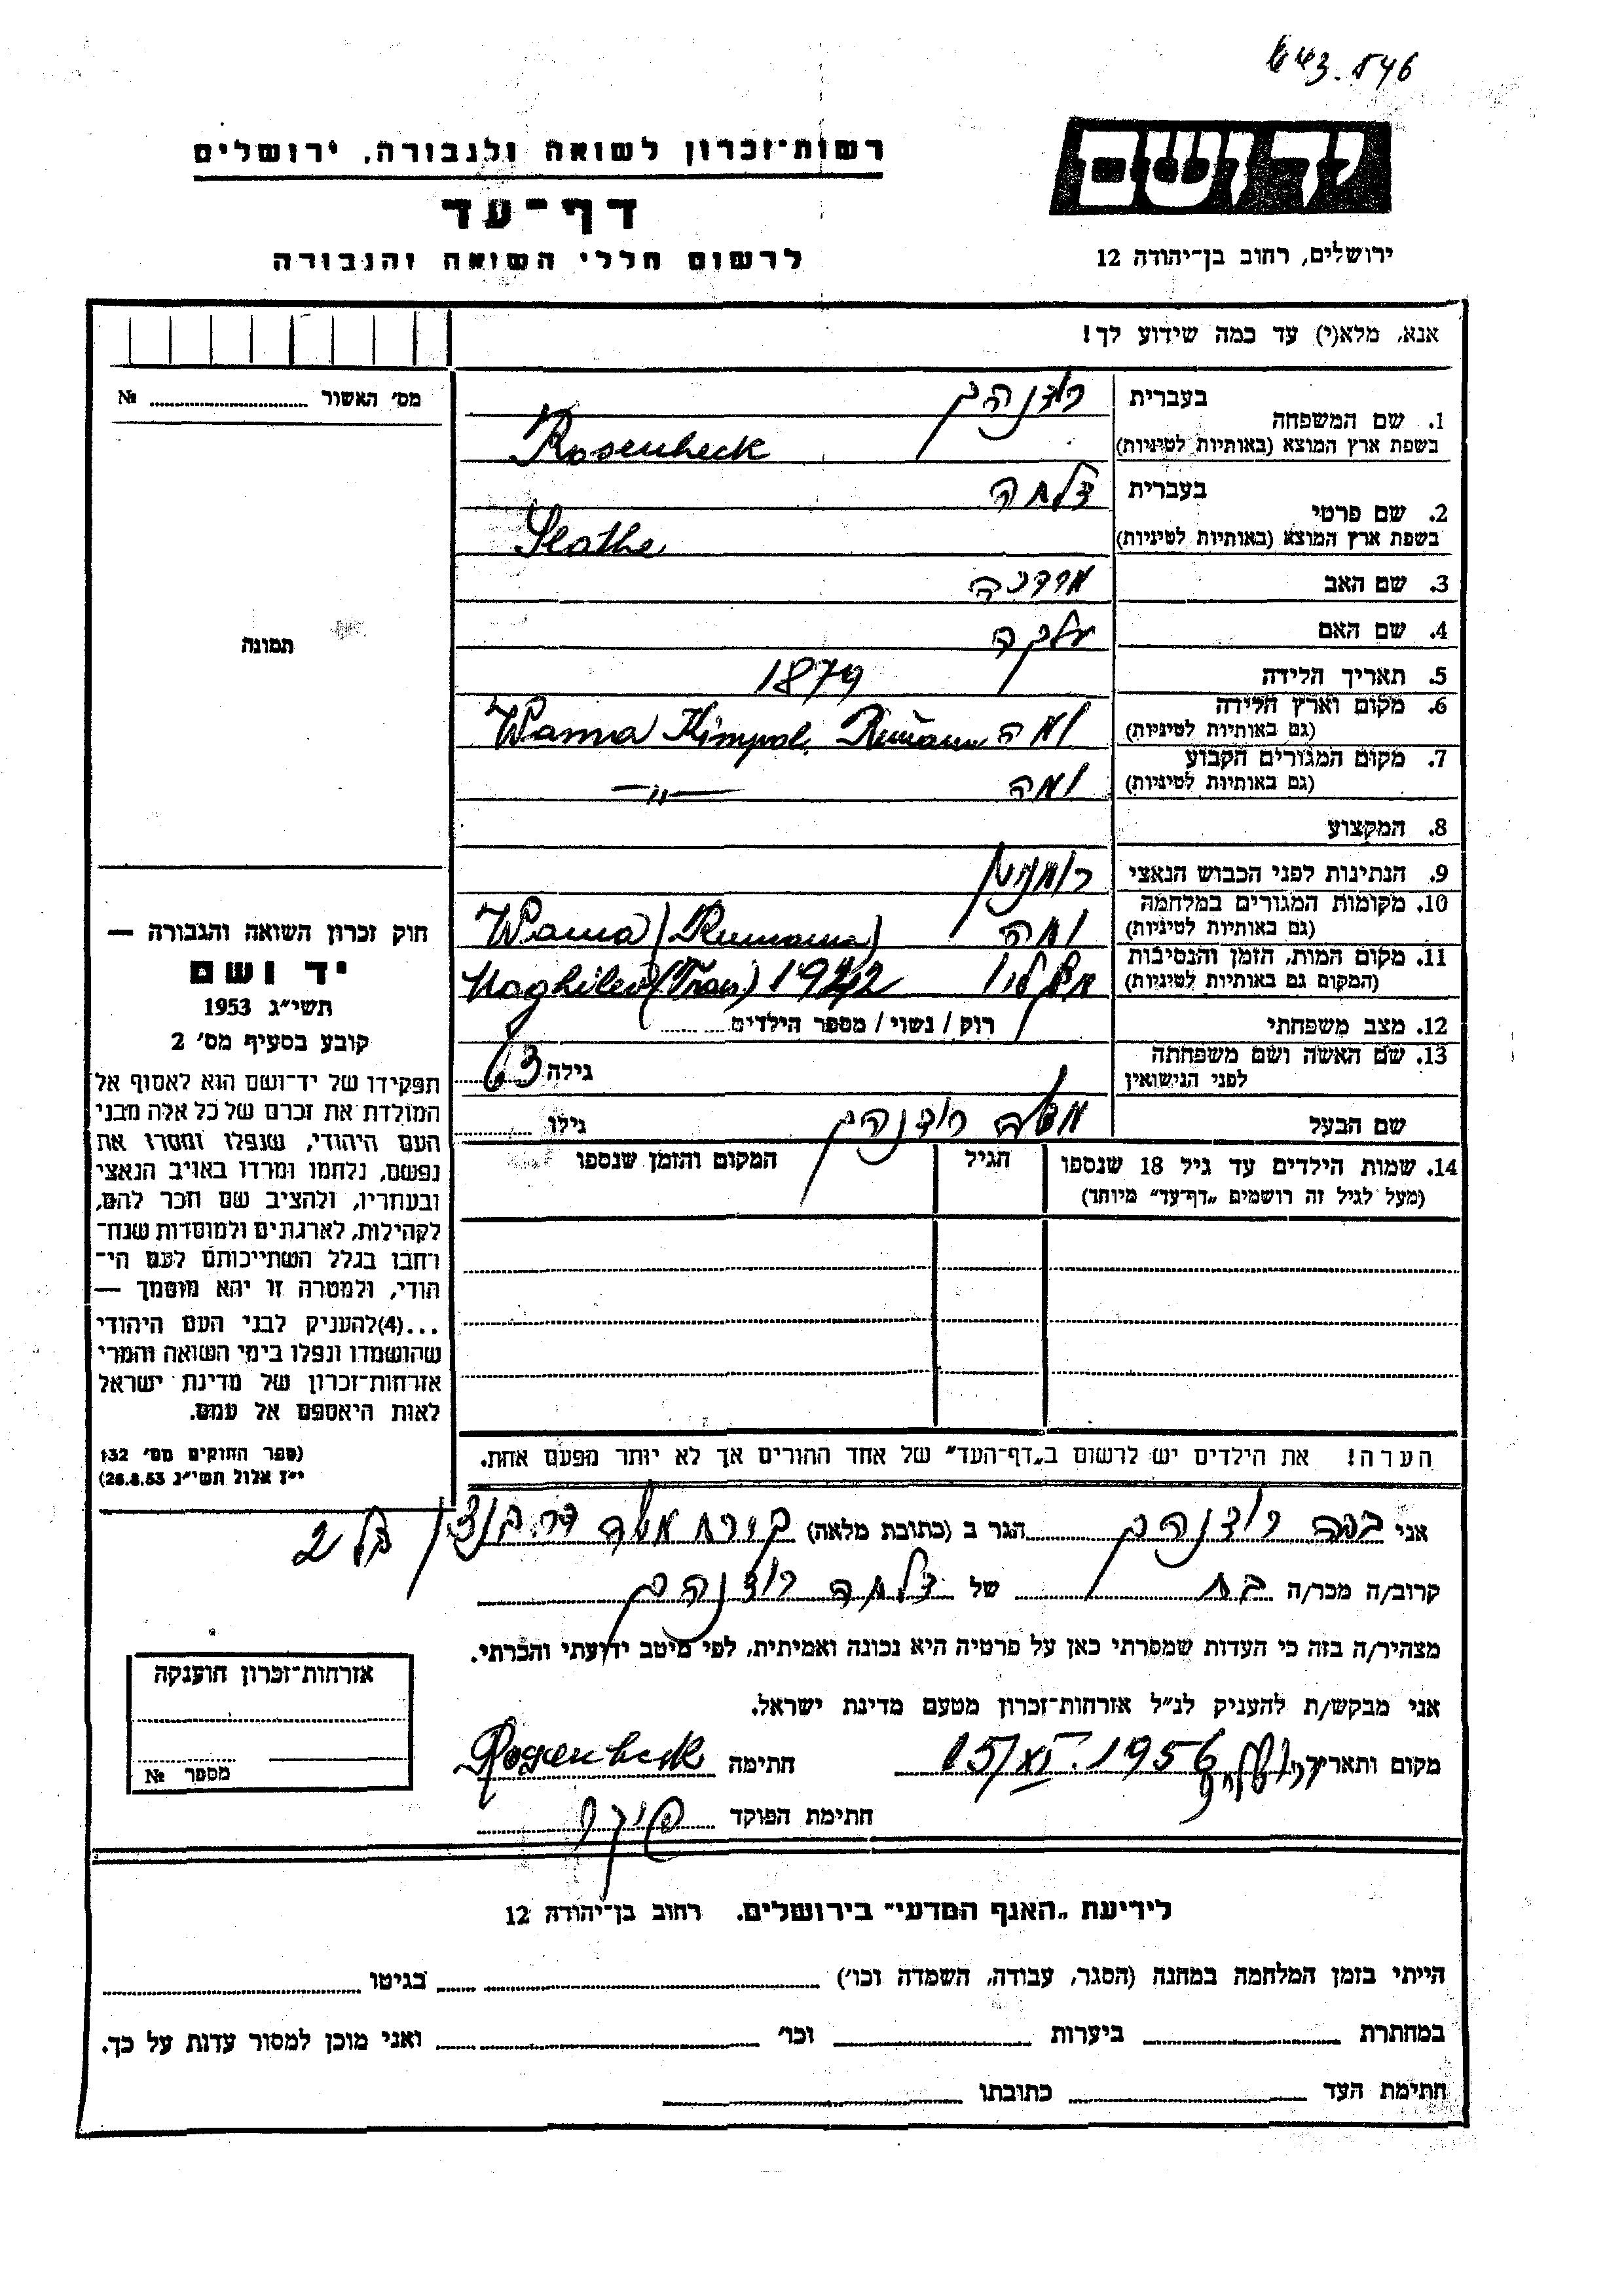 443.546
ידושם
רשות־זכרון לשואה ולגבורה, ירושלים
דף־עד
לרשום חללי השואה והגבורה
ירושלים, רחוב בן־יהודה 12
אנא, מלא(י) עד כמה שידוע לך!
מס׳ האשור № ........
תמונה
חוק זכרון השואה והגבורה —
יד ושם
תשי״ג 1953
קובע בסעיף מס׳ 2
תפקידו של יד־ושם הוא לאסוף אל
המולדת את זכרם של כל אלה מבני
העם היהודי, שנפלו ומסרו את
נפשם, נלחמו ומרדו באויב הנאצי
ובעוזריו, ולהציב שם וזכר להם,
לקהילות, לארגונים ולמוסדות שנח־
רחבו בגלל השתייכותם לעם הי־
הודי, ולמטרה זו יהא מוסמך —
...(4)להעניק לבני העם היהודי
שהושמדו ונפלו בימי השואה והמרי
אזרחות־זכרון של מדינת ישראל
לאות היאספם אל עמם.
(ספר החוקים מס׳ 132
י״ז אלול תשי״ג 28.8.53)
1. שם המשפחה בעברית רוזנהק
בשפת ארץ המוצא (באותיות לטיניות) Rosenheck
2. שם פרטי בעברית זלאטה
בשפת ארץ המוצא (באותיות לטיניות) Slathe
3. שם האב מרדכי
4. שם האם מלכה
5. תאריך הלידה 1879
6. מקום וארץ הלידה ומה Wama Kimpol.
(גם באותיות לטיניות)
7. מקום המגורים הקבוע ומה —״—
(גם באותיות לטיניות)
8. המקצוע
9. הנתינות לפני הכבוש הנאצי
10. מקומות המגורים במלחמה ומה Wama
(גם באותיות לטיניות)
11. מקום המות, הזמן והנסיבות Moghilev (Trans.) 1942
(המקום גם באותיות לטיניות)
12. מצב משפחתי רוק / נשוי / מספר הילדים ........
13. שם האשה ושם משפחתה
לפני הנישואין גילה 63
שם הבעל משה רוזנהק גילו ........
14. שמות הילדים עד גיל 18 שנספו הגיל המקום והזמן שנספו
(מעל לגיל זה רושמים „דף־עד״ מיוחד)
הערה! את הילדים יש לרשום ב„דף־העד״ של אחד ההורים אך לא יותר מפעם אחת.
אני רוזנהק הגר ב (כתובת מלאה) קירית משה
קרוב/ה מכר/ה בת של רוזנהק
מצהיר/ה בזה כי העדות שמסרתי כאן על פרטיה היא נכונה ואמיתית, לפי מיטב ידיעתי והכרתי.
אני מבקש/ת להעניק לנ״ל אזרחות־זכרון מטעם מדינת ישראל.
מקום ותאריך ירושלים 15/XI.1956 חתימה Rosenheck
חתימת הפוקד
אזרחות־זכרון הוענקה
מספר №
לידיעת „האגף המדעי״ בירושלים, רחוב בן־יהודה 12
הייתי בזמן המלחמה במחנה (הסגר, עבודה, השמדה וכו׳) ........ בגיטו ........
במחתרת ........ ביערות ........ וכו׳ ........ ואני מוכן למסור עדות על כך.
חתימת העד ........ כתובתו ........